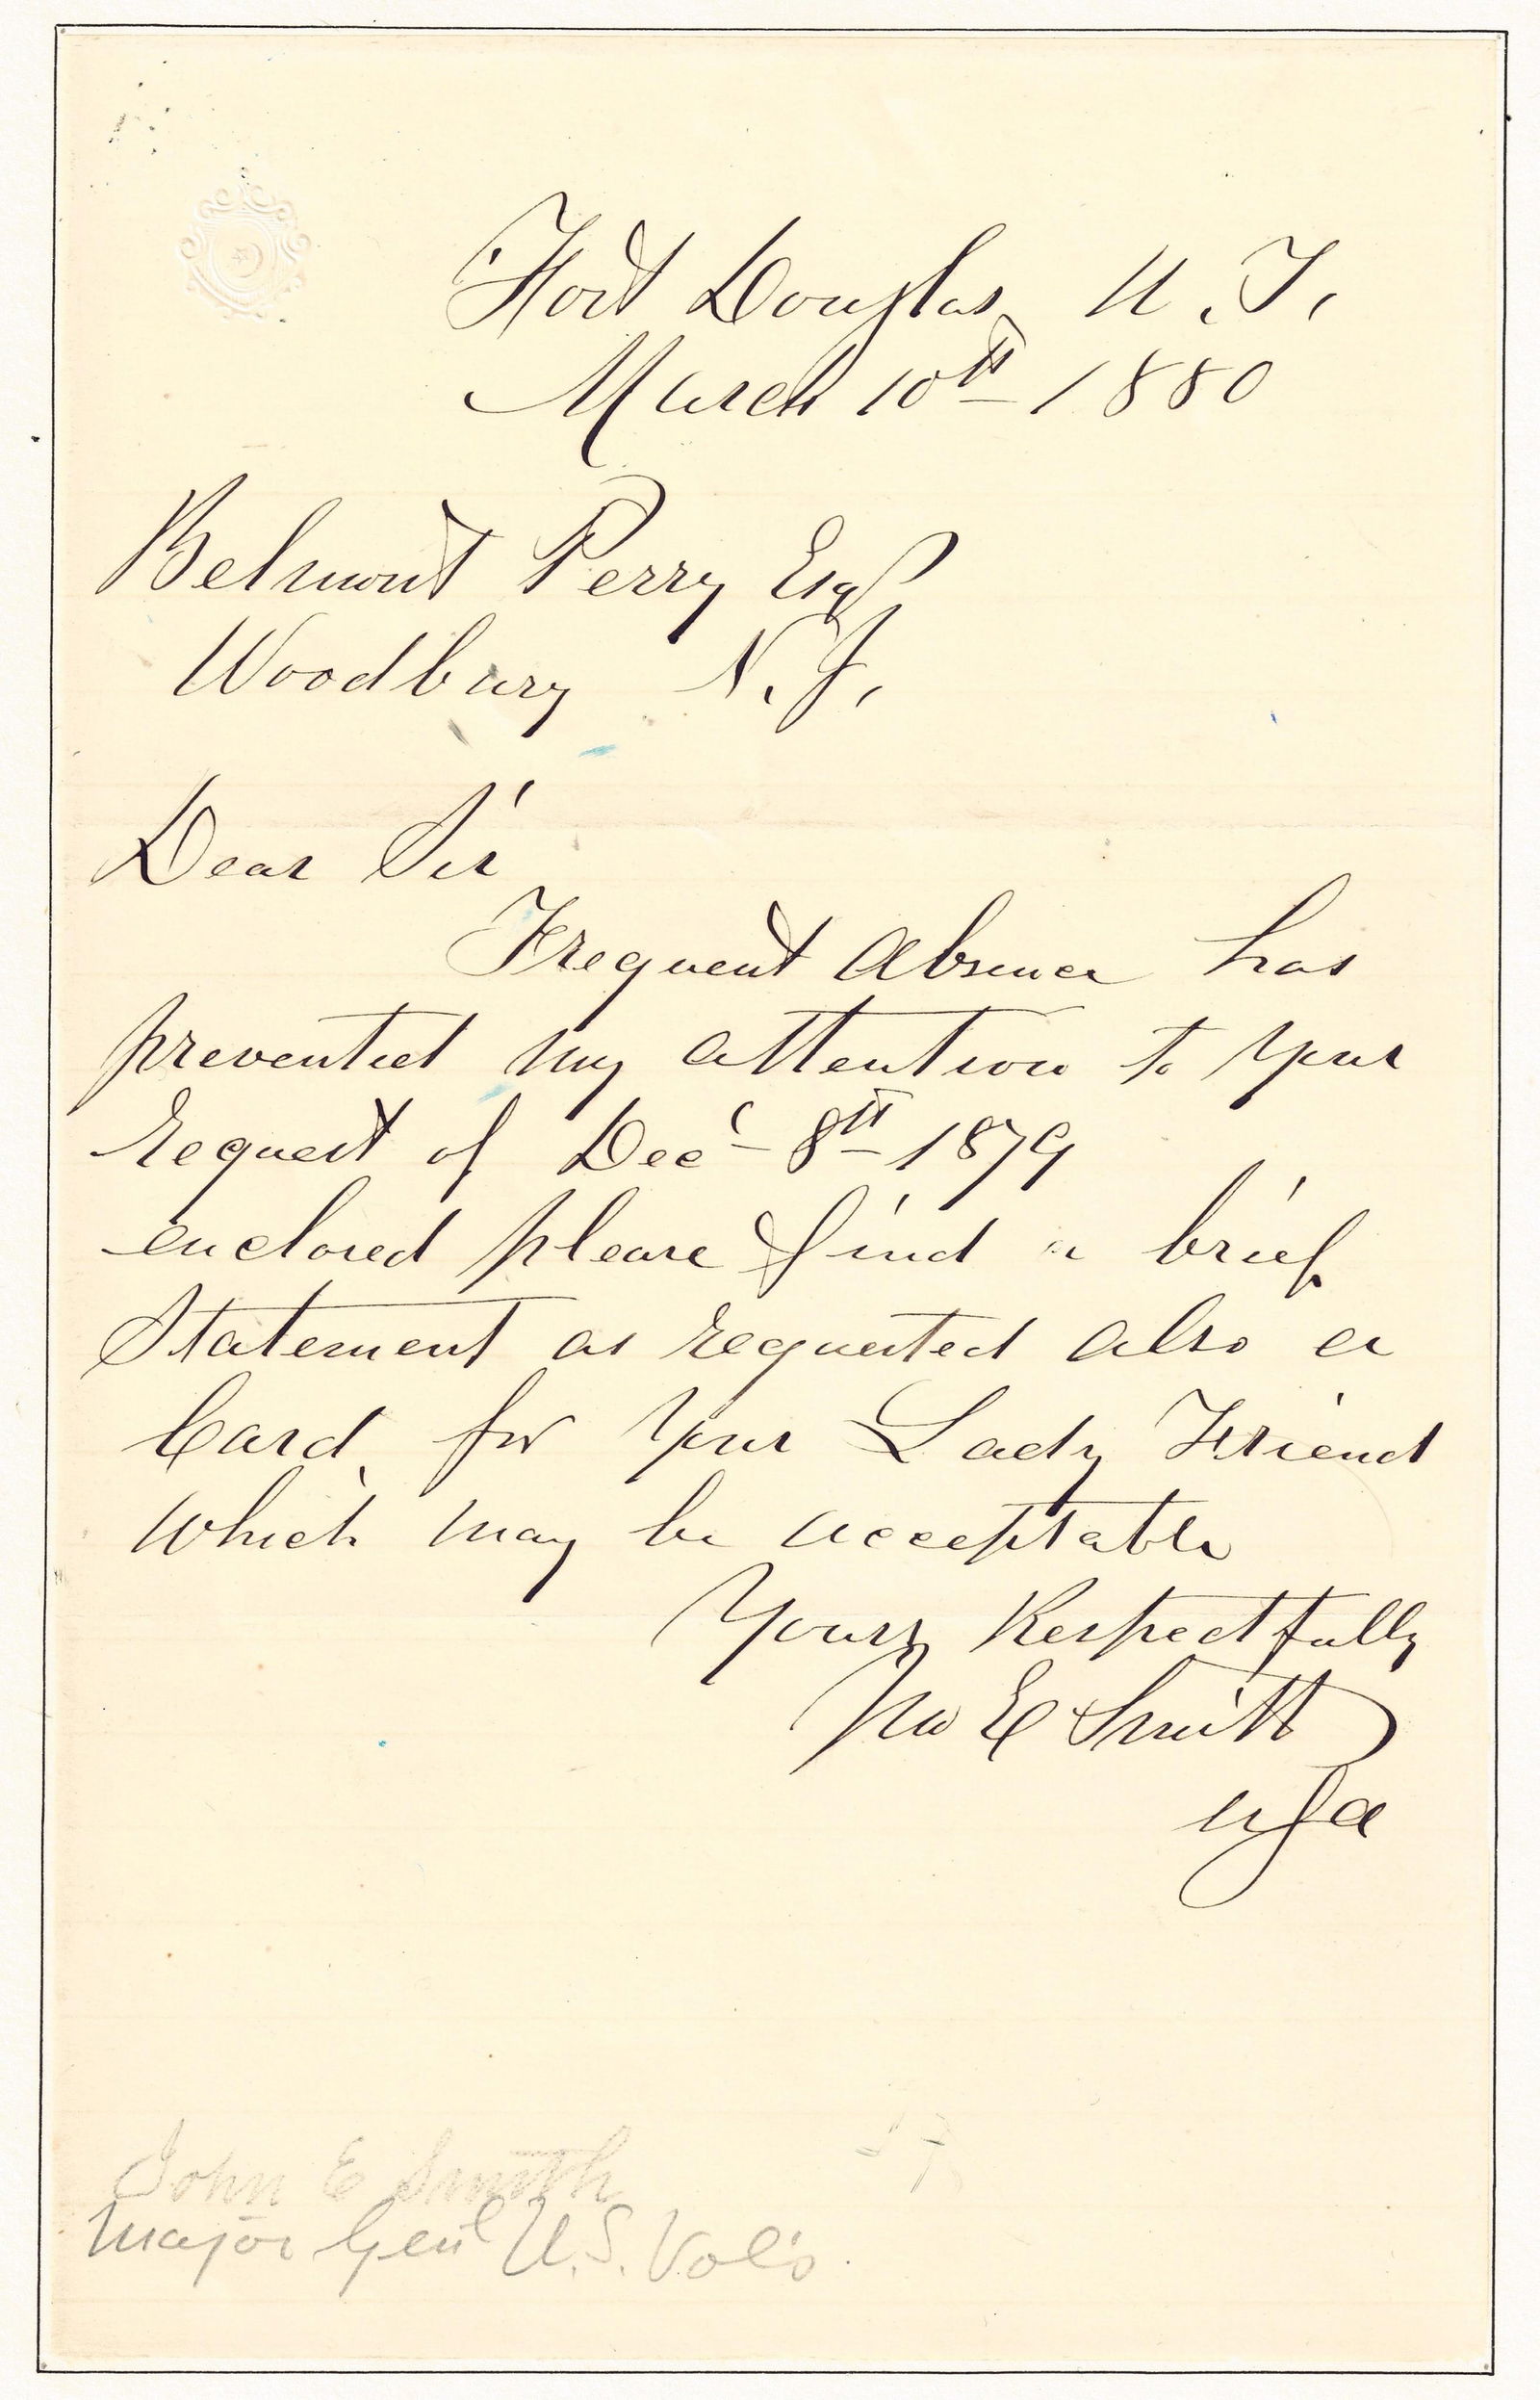 Fort Douglas U.T.
March 10th 1880
Belmont Perry Esq
Woodbury N.J.
Dear Sir
Frequent Absence has
prevented my attention to your
request of Decr 8th 1879
enclosed please find a brief
Statement as requested also a
Card, for your Lady Friend
which may be acceptable
Yours Respectfully
Jno E Smith
USA
John E Smith
Major Genl U.S. Vols.